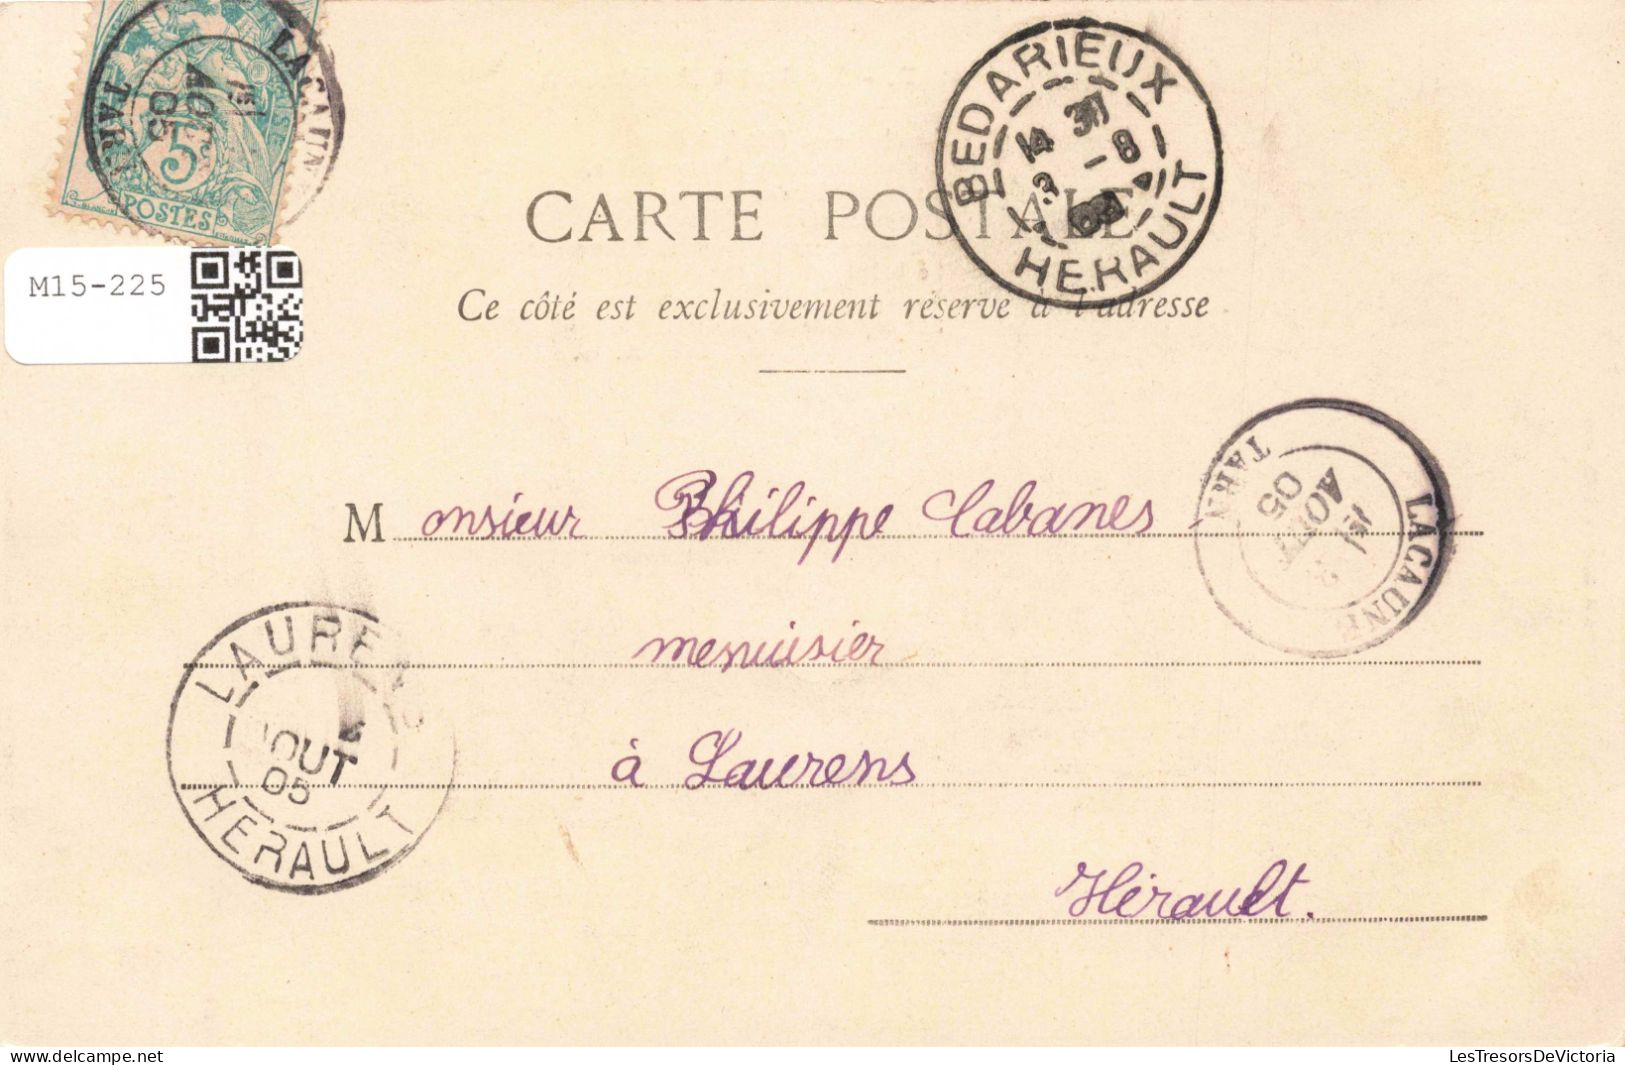 LACAUNE
TARN
AOUT
05
5
POSTES
M15-225
BEDARIEUX
14 30
3 -8
HERAULT
CARTE POSTALE
Ce côté est exclusivement réservé à l'adresse
Monsieur Philippe Cabanes
LACAUNE
TARN
AOUT
05
menuisier
LAURENS
4
AOUT
05
HERAULT
à Laurens
Hérault.
LesTresorsDeVictoria
https://www.delcampe.net